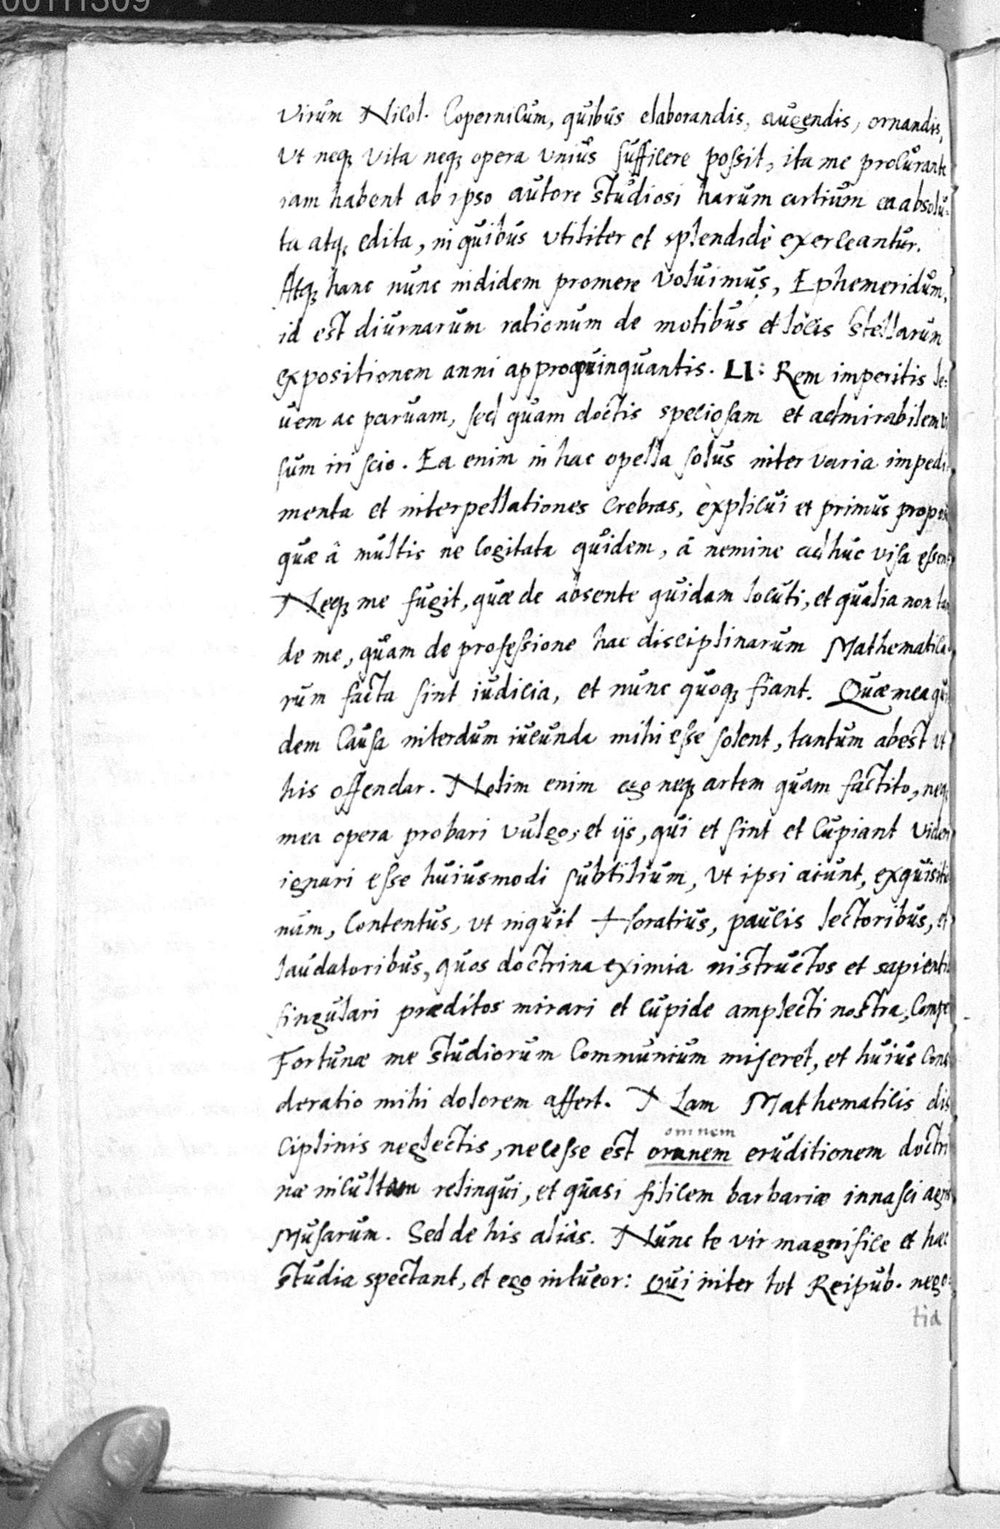 00111309
virum Nicol. Copernicum, quibus elaborandis, augendis, ornandis,
Ut neq; vita neq; opera unius sufficere possit, ita me procurante
iam habent ab ipso autore studiosi harum artium ea absolu-
ta atq; edita, in quibus utiliter et splendidè exerceantur.
Atq; hanc nunc indidem promere voluimus, Ephemeridum,
id est diurnarum rationum de motibus et locis stellarum
expositionem anni appropinquantis. LI: Rem imperitis le-
uem ac paruam, sed quam doctis speciosam et admirabilem
sum iri scio. Ea enim in hac opella solus inter varia impedi-
menta et interpellationes crebras, explicui et primus
quæ â multis ne cogitata quidem, â nemine adhuc visa essent
Neq; me fugit, quæ de absente quidam locuti, et qualia non
de me, quam de professione hac disciplinarum Mathematica-
rum facta sint iudicia, et nunc quoq; fiant. Quæ mea qui
dem causa interdum iucunda mihi esse solent, tantum abest ut
his offendar. Nolim enim ego neq; artem quam factito, neq;
mea opera probari vulgo, et ijs, qui et sint et cupiant videri
ignari esse huiusmodi subtilium, ut ipsi aiunt, exquisitio
num, contentus, ut inquit Horatius, paucis lectoribus, et
laudatoribus, quos doctrina eximia instructos et sapientia
singulari præditos mirari et cupide amplecti nostra,
Fortunæ me studiorum communium miseret, et huius consi
deratio mihi dolorem affert. Nam Mathematicis dis
omnem
ciplinis neglectis, necesse est omnem eruditionem doctri
næ incultam relinqui, et quasi filicem barbariæ innasci agris
Musarum. Sed de his aliàs. Nunc te vir magnifice et hæc
studia spectant, et ego intueor: Qui inter tot Reipub. nego-
tia